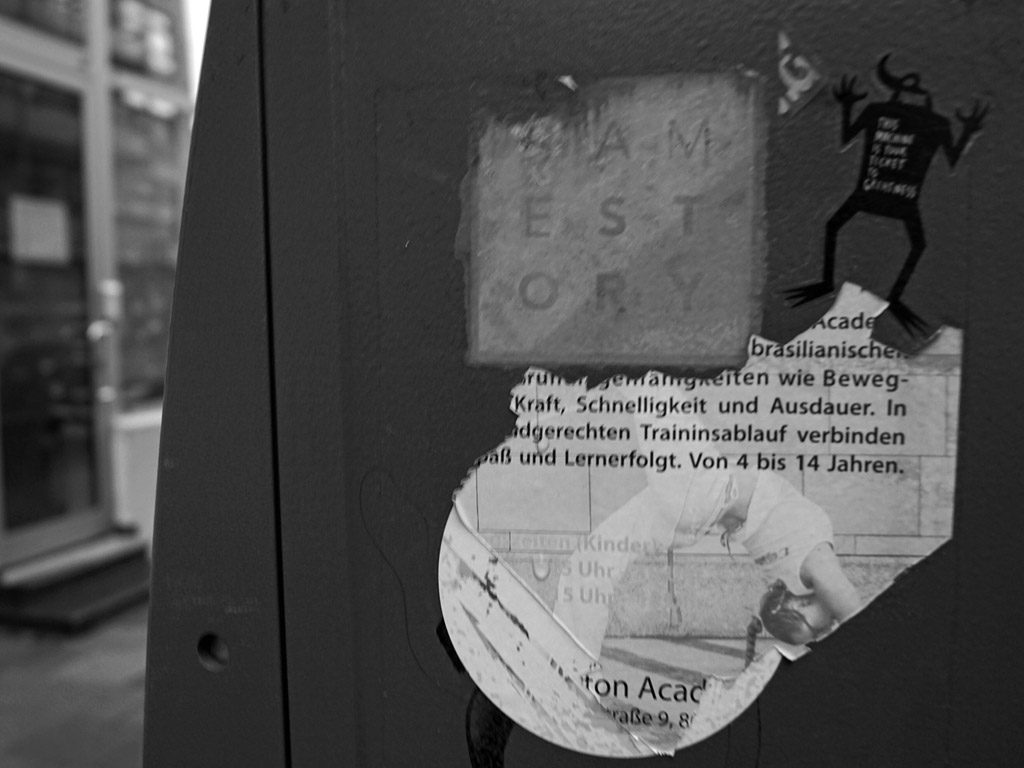 I AM
EST
ORY
THIS
MACHINE
IS YOUR
TICKET
TO
GREATNESS
Acade
brasilianischen
genfähigkeiten wie Beweg-
Kraft, Schnelligkeit und Ausdauer. In
dgerechten Traininsablauf verbinden
paß und Lernerfolgt. Von 4 bis 14 Jahren.
eiten (Kinder)
15 Uhr
15 Uhr
ton Acad
traße 9, 8